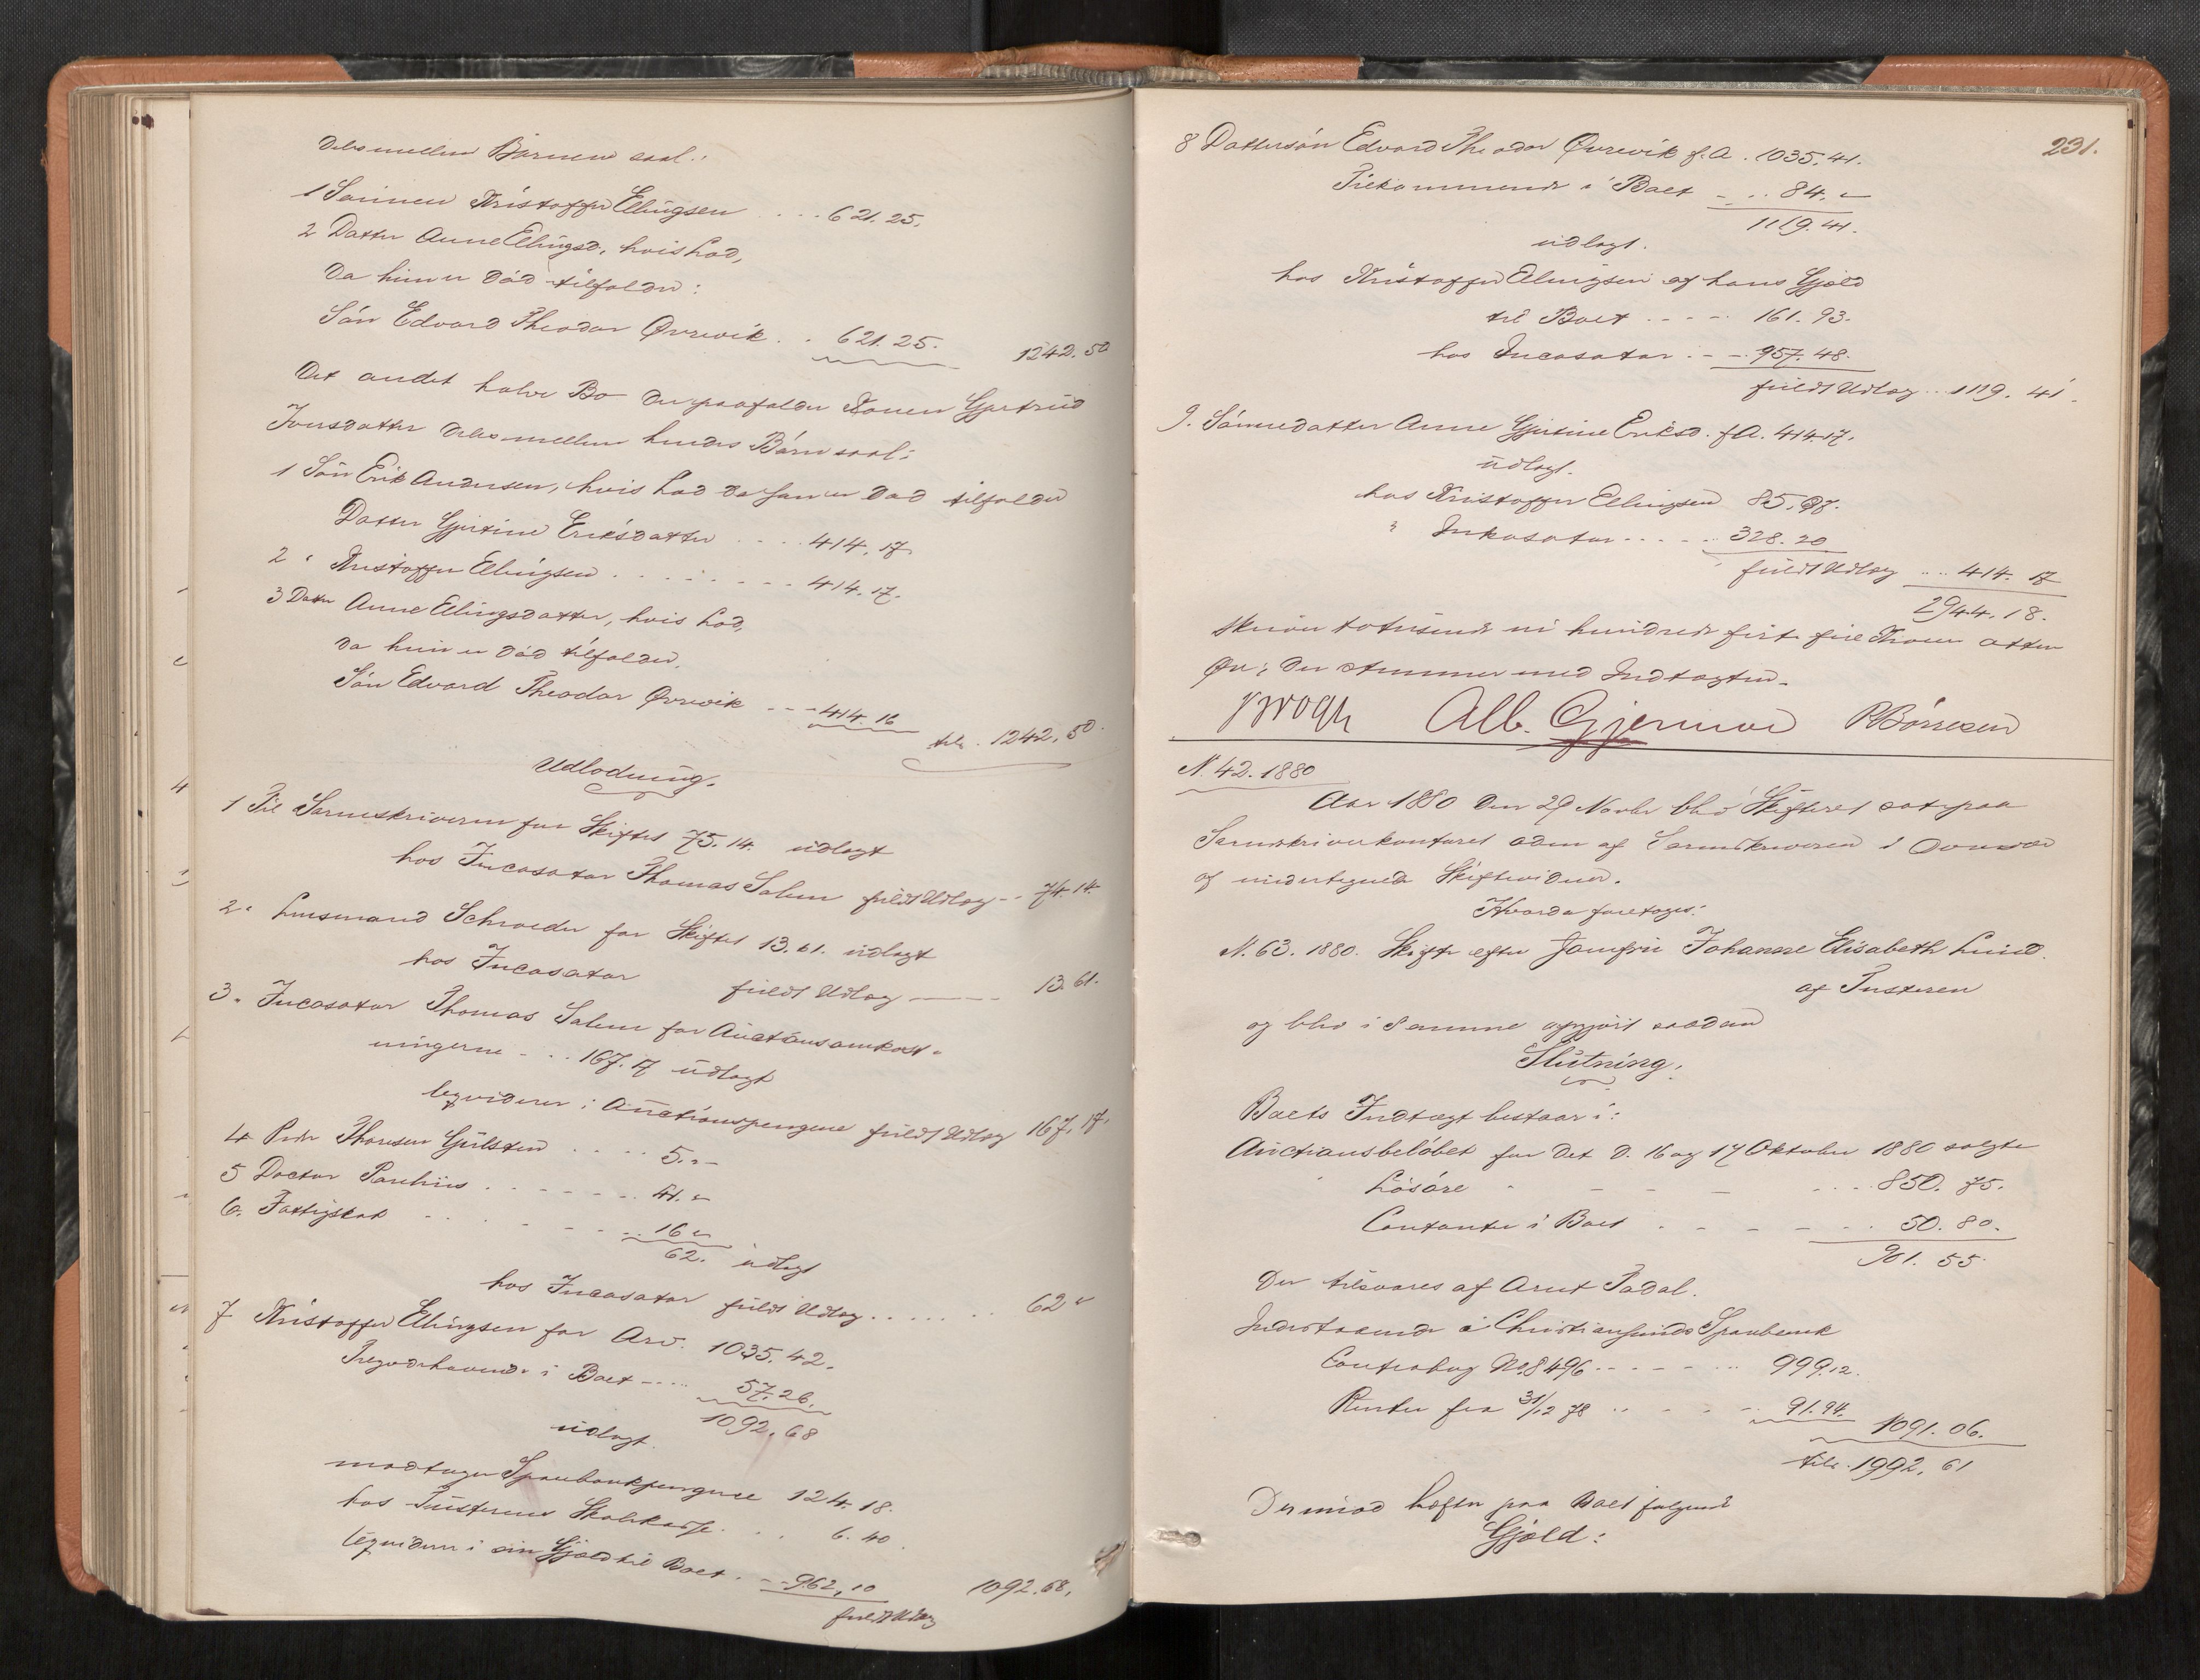 deles mellem Børnene saal.:
1 Sønnen Kristoffer Ellingsen . . . . 621. 25.
2 Datter Anne Ellingsd., hvis Lod,
da hun er død tilfalder:
Søn Edvard Theodor Øvrevik . . 621. 25. 1242. 50
Det andet halve Bo der paafalder Konen Gjertrud
Jonsdatter deles mellem hendes Børn saal:
1 Søn Erik Andersen, hvis Lod da han er død tilfalder
Datter Gjertine Eriksdatter . . . . 414. 17
2 " Kristoffer Ellingsen . . . . . . . . 414. 17.
3 Datter Anne Ellingsdatter, hvis Lod,
da hun er død tilfalder,
Søn Edvard Theodor Øvrevik - - - 414. 16
tils. 1242, 50.
Udlodning.
1 Til Sorenskriveren for Skiftet 75. 14. udlagt
hos Incasator Thomas Solem fuldt Udlæg - - 74. 14.
2 " Lensmand Schroeder for Skiftet 13. 61. udlagt
hos Incasator fuldt Udlæg — 13. 61.
3. Incasator Thomas Solem for Auctionsomkost-
ningerne - . . 167. 17 udlagt
liqviderer i Auctionspengene fuldt Udlæg 167. 17.
4 Peder Thoresen Gulsten . . . . 5. "
5 Doctor Parelius . . . . . . . 41. "
6. Fattigskat . . . . . . . . 16 "
62. " udlagt
hos Incasator fuldt Udlæg . . . . . . . 62 "
7 Kristoffer Ellingsen for Arv. 1035. 42.
Tilgodehavende i Boet - . . . 57. 26.
1092. 68
udlagt.
modtager Sparebankpengene 124. 18.
hos Tusterens Skolekasse . . . 6. 40.
liqviderer i sin Gjæld til Boet . - 962, 10 1092. 68.
fuldt Udlæg
231.
8 Dattersøn Edvard Theodor Øvrevik f. A. 1035. 41.
Tilkommende i Boet - . . 84. "
1119. 41.
udlagt.
hos Kristoffer Ellingsen af hans Gjæld
til Boet . . . . 161. 93.
hos Incasator . - - 957. 48.
fuldt Udlæg . . 1119. 41.
9. Sønnedatter Anne Gjertine Eriksd. f. A. 414. 17.
udlagt.
hos Kristoffer Ellingsen 85. 97.
" Inkasator . . . . . 328. 20
fuldt Udlæg . . . 414. 17
2944. 18.
skriver totusende ni hundrede firti fire Kroner atten
Øre; der stemmer med Indtægten.
Brogh Alb. Gjermoe P Børresen
N. 42. 1880
Aar 1880 den 29 Novbr blev Skifteret sat paa
Sorenskriverkontoret aden af Sorenskriveren i
og undertegnede Skiftevidner.
Hvorda foretoges:
N. 63. 1880. Skifte efter Jomfru Johanne Elisabeth Lund
af Tusteren
og blev i samme opgjort saadan
Slutning:
Boets Indtægt bestaar i:
Auctionsbeløbet for det d. 16 og 17 Oktober 1880 solgte
Løsøre . - - - . . . 850. 75.
Contanter i Boet . - - - . . 50. 80.
901. 55.
Der tilsvares af Arnt Todal.
Indestaaende i Christiansunds Sparebank
Contrabog No. 8496 - - - . . . 999. 12.
Renter fra 31/12 78 . . - . - . 91. 94. 1091. 06.
tils. 1992. 61
Derimod hefter paa Boet følgende
Gjæld: